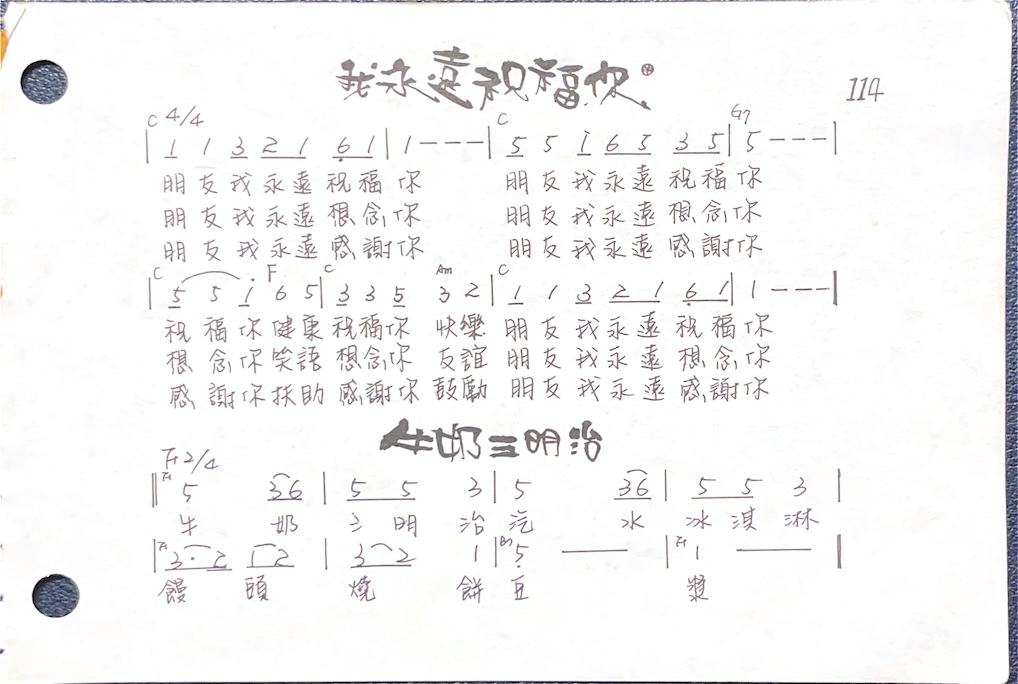 我永遠祝福你
114
C 4/4 C G7
| 1 1 3 2 1 6 1 | 1 - - - | 5 5 i 6 5 3 5 | 5 - - - |
朋友我永遠祝福你 朋友我永遠祝福你
朋友我永遠想念你 朋友我永遠想念你
朋友我永遠感謝你 朋友我永遠感謝你
C F C Am C
| 5 5 i 6 5 | 3 3 5 3 2 | 1 1 3 2 1 6 1 | 1 - - - |
祝福你健康祝福你 快樂 朋友我永遠祝福你
想念你笑語想念你 友誼 朋友我永遠想念你
感謝你扶助感謝你 鼓勵 朋友我永遠感謝你
牛奶三明治
F 2/4
F
|| 5 3 6 | 5 5 3 | 5 3 6 | 5 5 3 |
牛 奶 三 明 治 汽 水 冰 淇 淋
F F
| 3 · 2 1 2 | 3 2 1 | 5 — | 1 — |
饅 頭 燒 餅 豆 漿